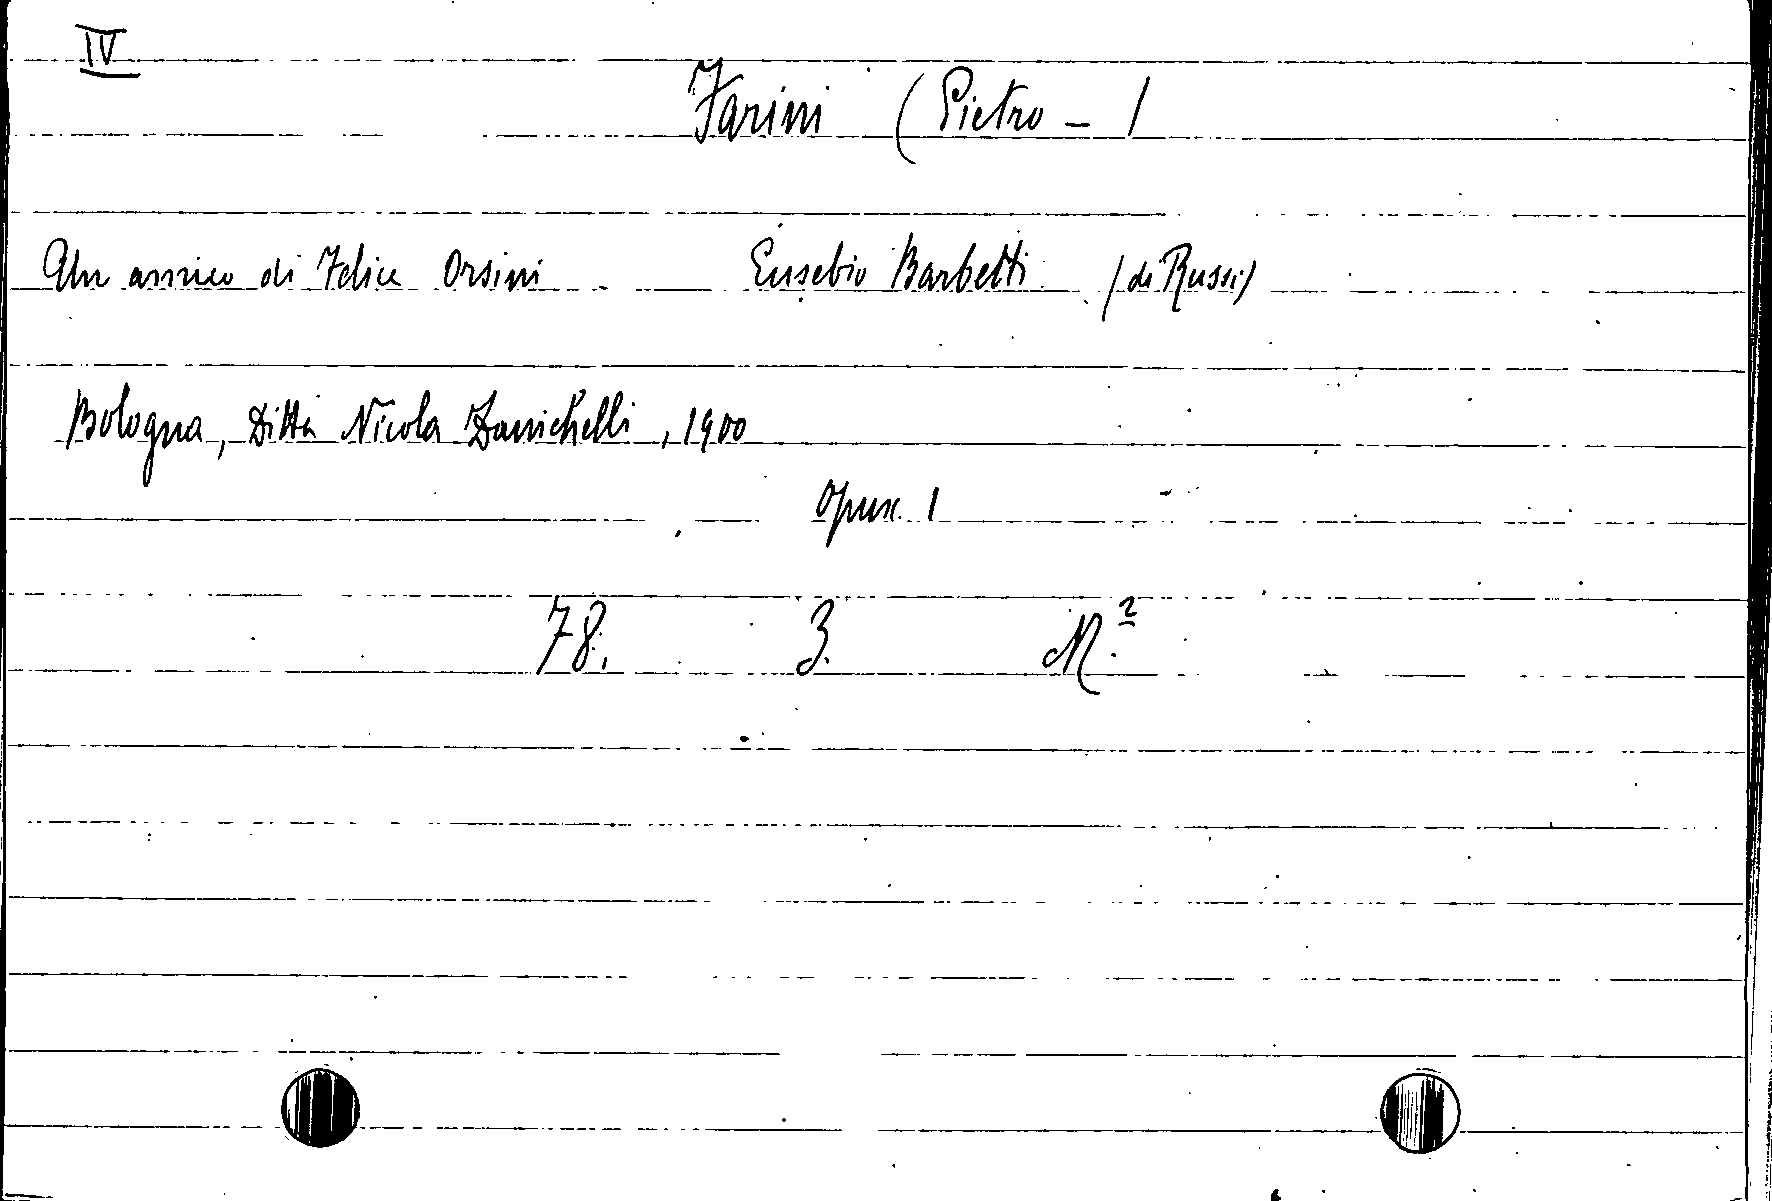 IV
Farini (Pietro - )
Un amico di Felice Orsini - Eusebio Barbetti (di Russi)
Bologna, Ditta Nicola Zanichelli, 1900
Opusc. 1
78. 3. M.²